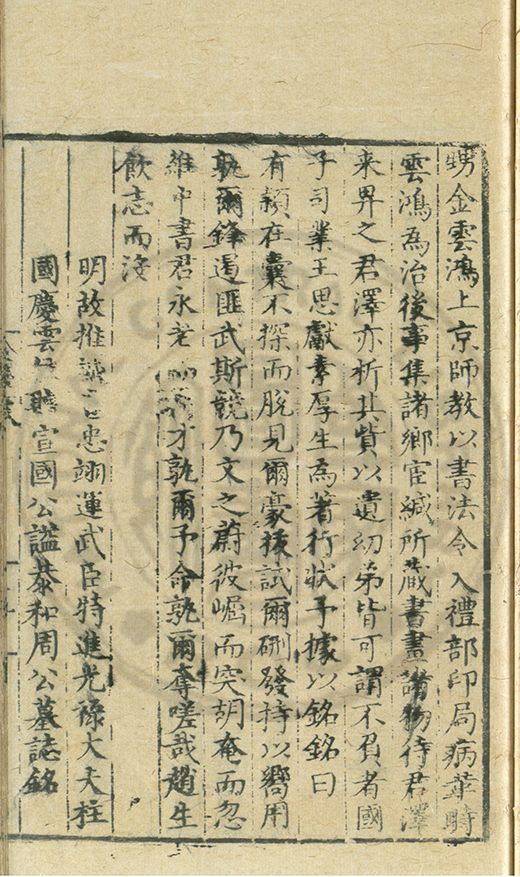 甥金雲鴻上京師教以書法令入禮部印局病革時
雲鴻為治後事集諸鄉宦緘所蔵書畫諸物待君澤
来畀之君澤亦析其貲以遺幼弟皆可謂不負者國
子司業王思獻素厚生為著行狀予據以銘銘曰
有穎在囊不探而脫見爾豪穎試爾硎發持以嚮用
孰爾鋒遏匪武斯競乃文之蔚彼崛而突胡奄而忽
維中書君永老 才孰爾予命孰爾奪嗟哉趙生
飲志而沒
明故推誠 忠翊運武臣特進光祿大夫柱
國慶雲 贈宣國公謚恭和周公墓誌銘